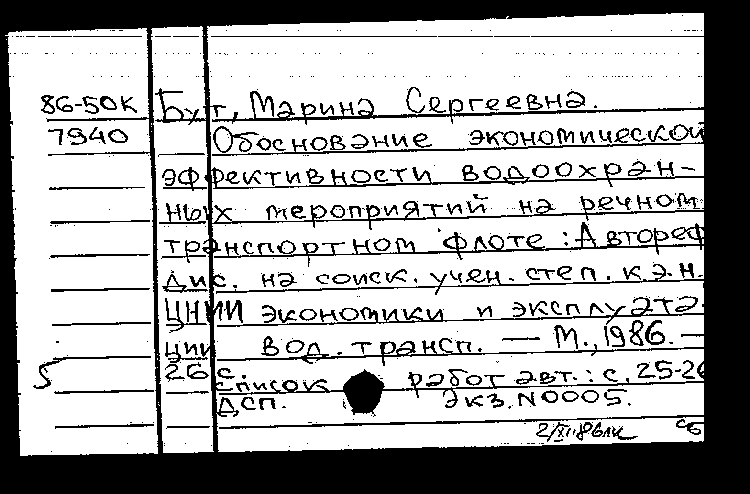 86-50К Бут, Марина Сергеевна.
7940 Обоснование экономической
эффективности водоохран-
ных мероприятий на речном
транспортном флоте : Автореф
дис. на соиск. учен. степ. к.э.н.
ЦНИИ экономики и эксплуата-
ции вод. трансп. — М., 1986. —
26 с.
5 Список работ авт.: с. 25-26
ДСП. Экз. N0005.